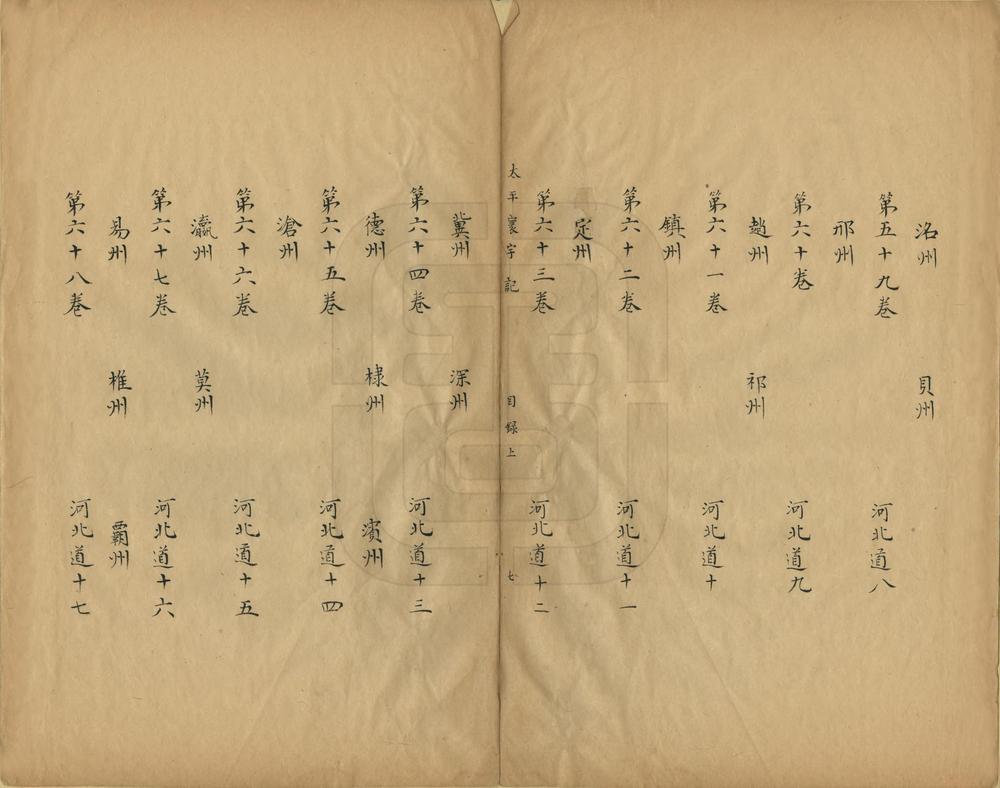 洺州 貝州
第五十九卷 河北道八
邢州
第六十卷 河北道九
趙州 祁州
第六十一卷 河北道十
鎮州
第六十二卷 河北道十一
定州
第六十三卷 河北道十二
太平寰宇記 目録上 七
冀州 深州
第六十四卷 河北道十三
德州 棣州 濱州
第六十五卷 河北道十四
滄州
第六十六卷 河北道十五
瀛州 莫州
第六十七卷 河北道十六
易州 椎州 霸州
第六十八卷 河北道十七